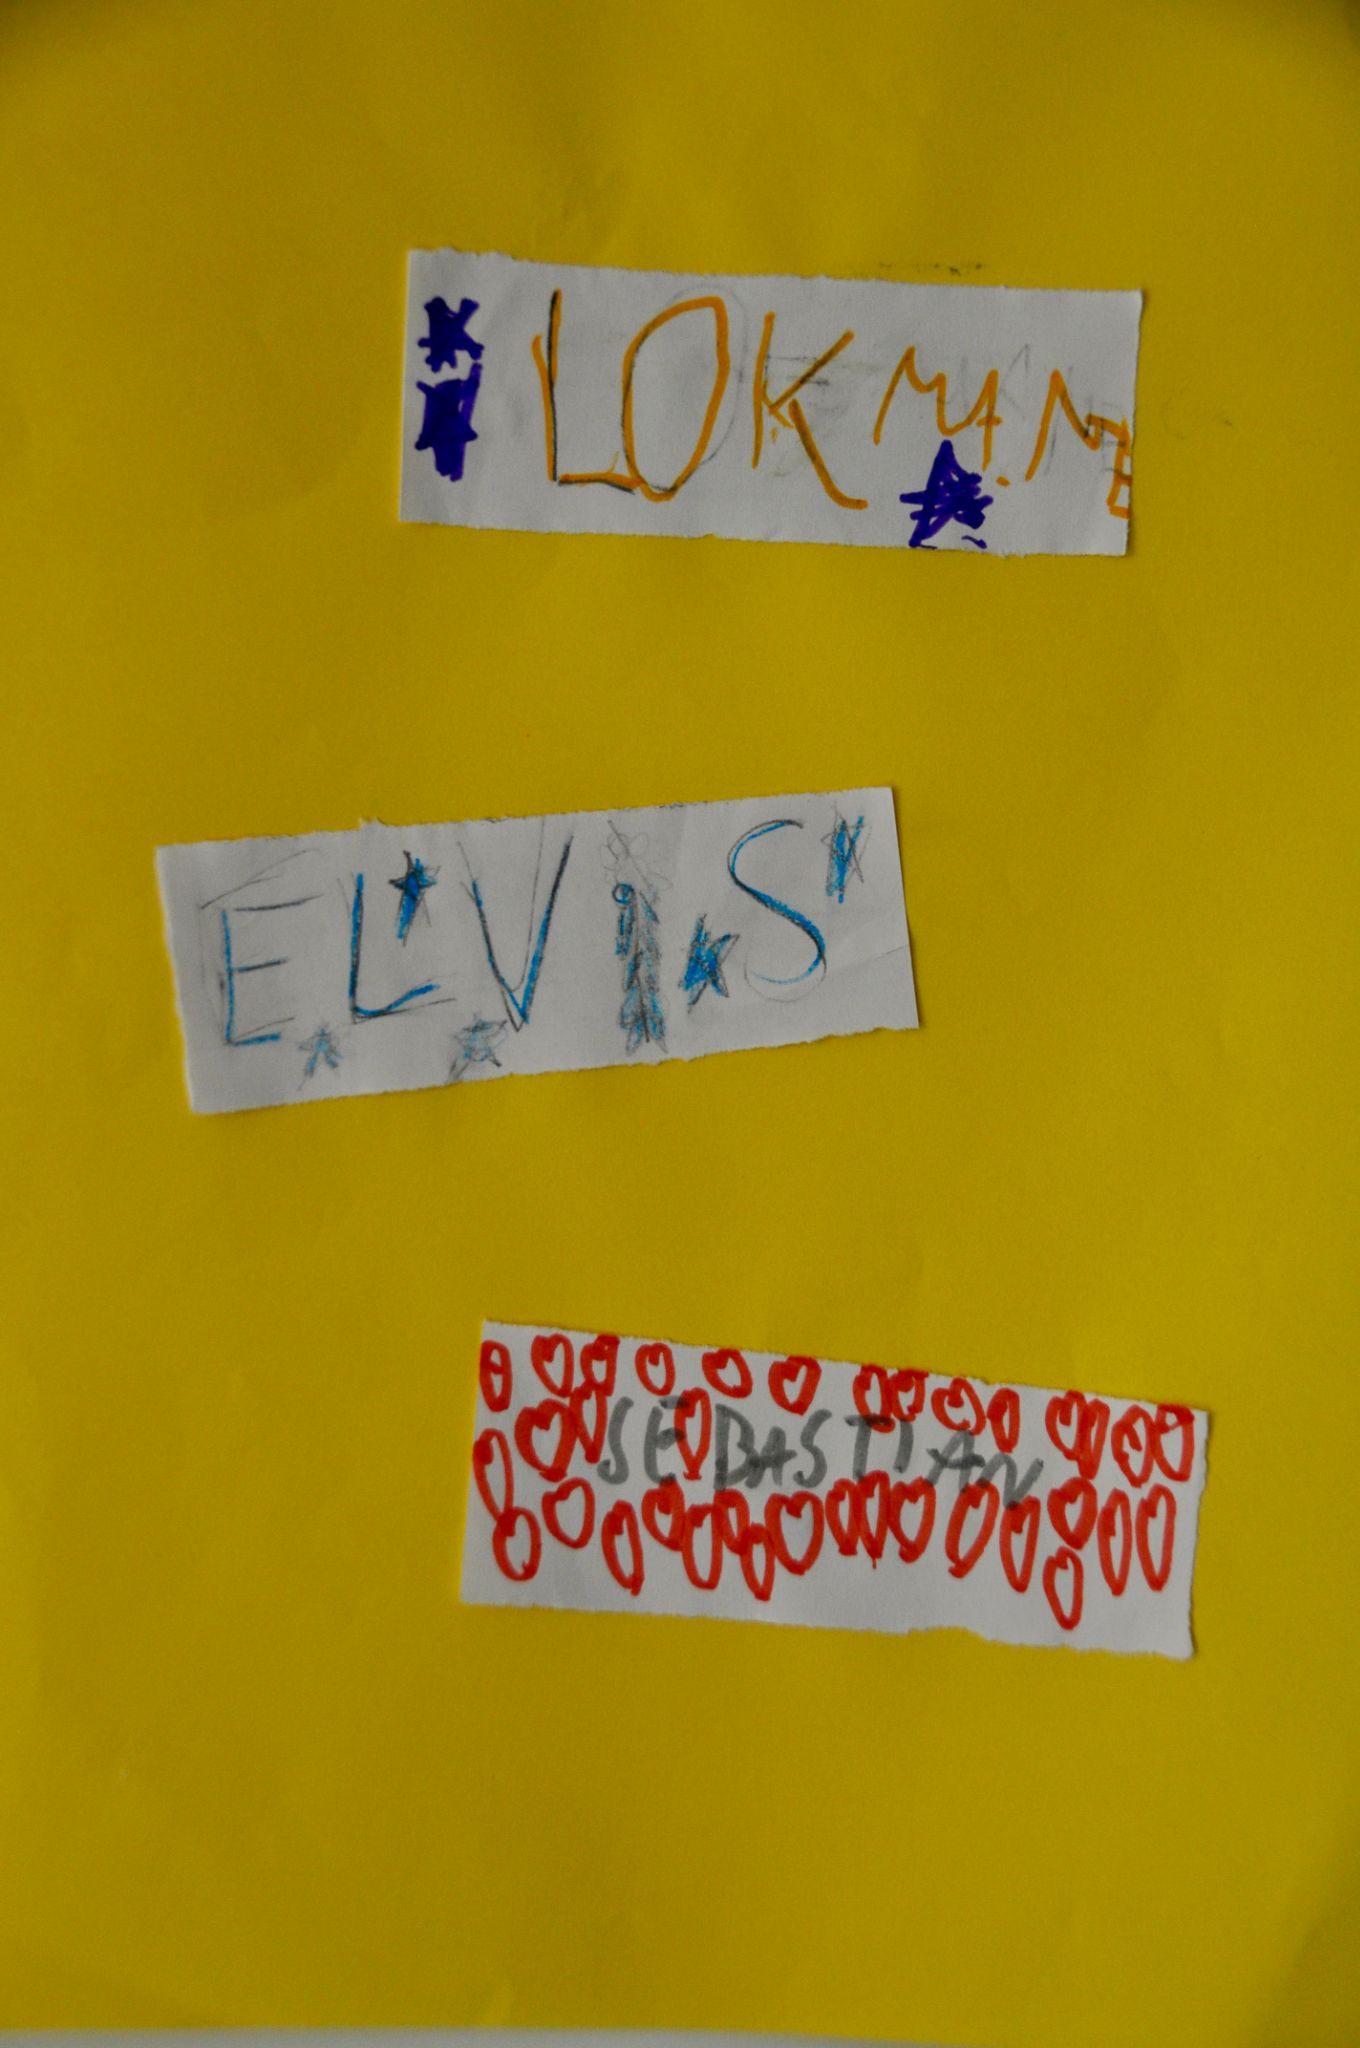 LOKMANE
ELVIS
SEBASTIAN